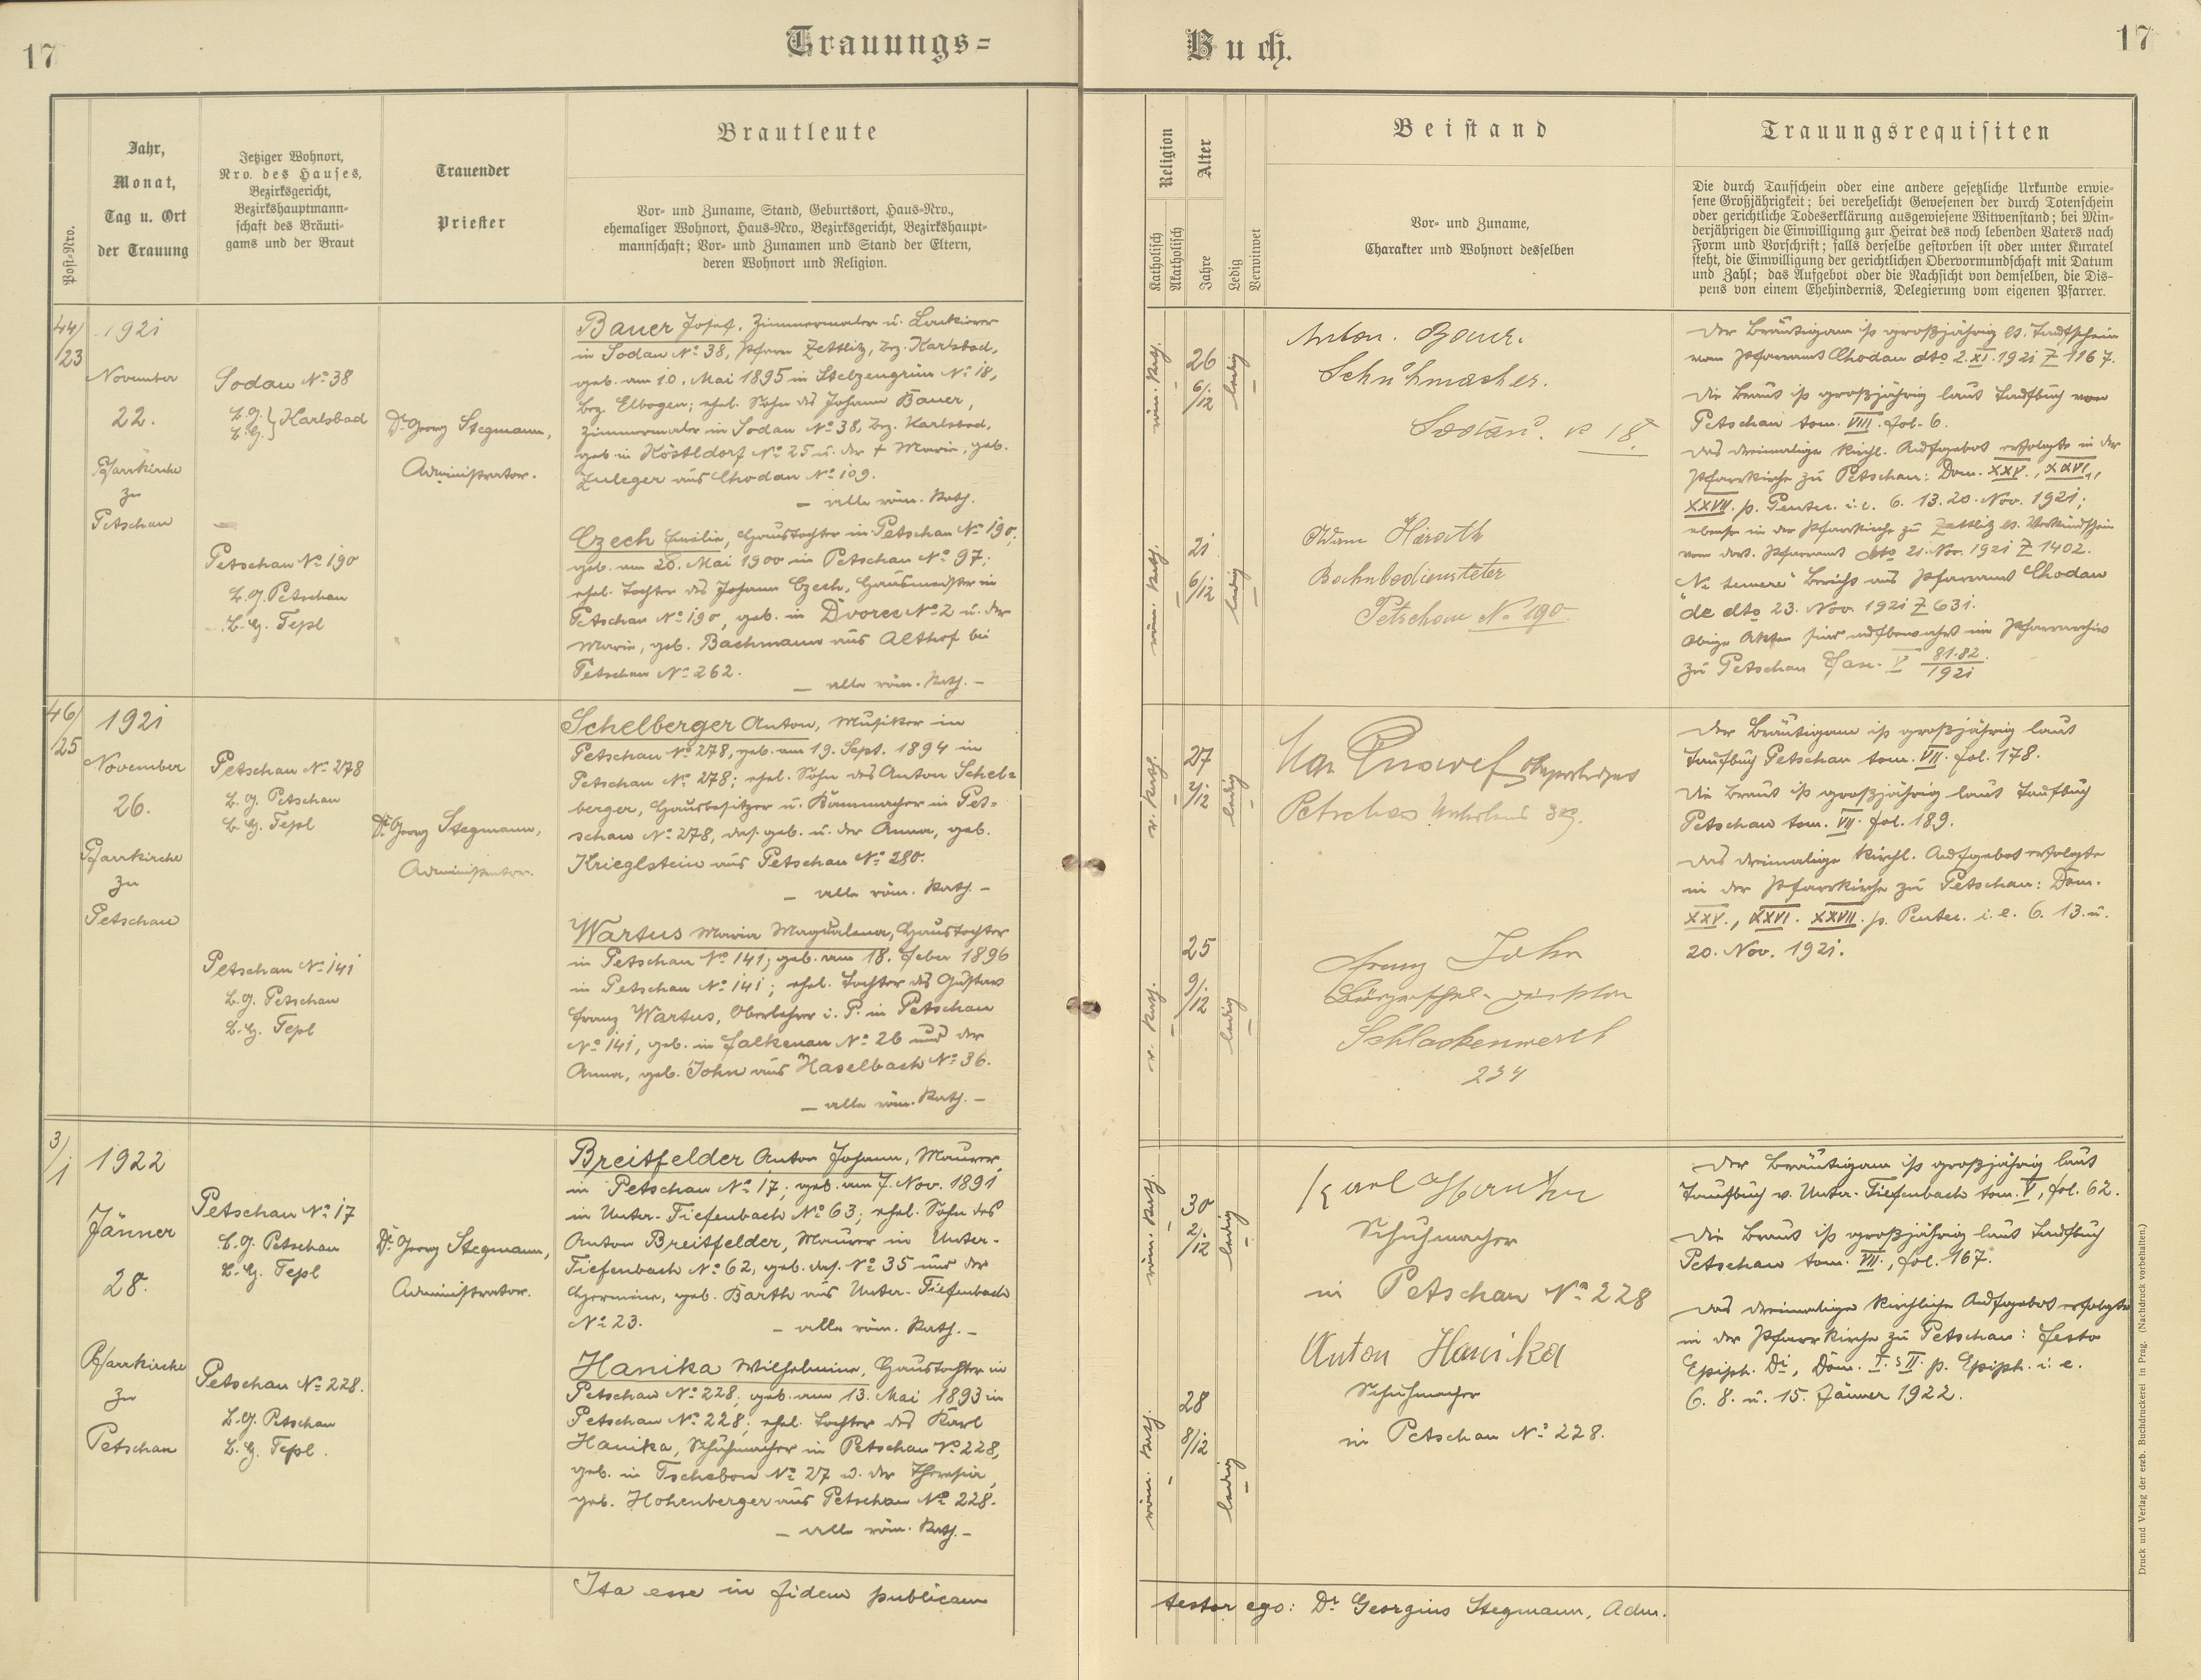 17
Trauungs=
Buch.
17
Post-Nro.
Jahr,
Monat,
Tag u. Ort
der Trauung
Jetziger Wohnort,
Nro. des Hauses,
Bezirksgericht,
Bezirkshauptmann-
schaft des Bräuti-
gams und der Braut
Trauender
Priester
Brautleute
Vor- und Zuname, Stand, Geburtsort, Haus-Nro.,
ehemaliger Wohnort, Haus-Nro., Bezirksgericht, Bezirkshaupt-
mannschaft; Vor- und Zunamen und Stand der Eltern,
deren Wohnort und Religion.
Religion
Katholisch
Akatholisch
Alter
Jahre
Ledig
Verwitwet
Beistand
Vor- und Zuname,
Charakter und Wohnort desselben
Trauungsrequisiten
Die durch Taufschein oder eine andere gesetzliche Urkunde erwie-
sene Großjährigkeit; bei verehelicht Gewesenen der durch Totenschein
oder gerichtliche Todeserklärung ausgewiesene Witwenstand; bei Min-
derjährigen die Einwilligung zur Heirat des noch lebenden Vaters nach
Form und Vorschrift; falls derselbe gestorben ist oder unter Kuratel
steht, die Einwilligung der gerichtlichen Obervormundschaft mit Datum
und Zahl; das Aufgebot oder die Nachsicht von demselben, die Dis-
pens von einem Ehehindernis, Delegierung vom eigenen Pfarrer.
44/23
1921
November
22.
Pfarrkirche
zu
Petschau
Sodau No 38
B.G. } Karlsbad
B.H.
Petschau No 190
B.G. Petschau
B.H. Tepl
Dr Georg Stegmann,
Administrator.
Bauer Josef, Zimmermaler u. Lackierer
in Sodau No 38, Pfarre Zettlitz, Bez. Karlsbad,
geb. am 10. Mai 1895 in Stelzengrün No 18,
Bez. Elbogen; ehel. Sohn des Johann Bauer,
Zimmermaler in Sodau No 38, Bez. Karlsbad,
geb. in Köstldorf No 25 u. der † Marie, geb.
Zuleger aus Chodau No 109.
– alle röm. kath.
Czech Emilie, Haustochter in Petschau No 190;
geb. am 20. Mai 1900 in Petschau No 97;
ehel. Tochter des Johann Czech, Hausmeister in
Petschau No 190, geb. in Dvorec No 2 u. der
Marie, geb. Bachmann aus Althof bei
Petschau No 262.
– alle röm. kath. –
röm. kath.
26 6/12
ledig
röm. kath.
21 6/12
ledig
Anton. Bauer.
Schuhmacher.
Sodau. No 18.
Adam Harath
Bahnbediensteter
Petschau No 190
Der Bräutigam ist großjährig lt. Taufschein
vom Pfarramt Chodau dto 2. XI. 1921 Z 1167.
Die Braut ist großjährig laut Taufbuch von
Petschau tom. VIII. fol. 6.
Das dreimalige kirchl. Aufgebot erfolgte in der
Pfarrkirche zu Petschau: Dom. XXV., XXVI.,
XXVII. p. Pentec. i. e. 6. 13. 20. Nov. 1921;
ebenso in der Pfarrkirche zu Zettlitz lt. Verkündschein
vom dort. Pfarramt dto 21. Nov. 1921 Z 1402.
"Ne temere" Bericht ans Pfarramt Chodau
de dto 23. Nov. 1921 Z 631.
Obige Akten sind aufbewahrt im Pfarrarchiv
zu Petschau Fasc. V 81.82/1921
46/25
1921
November
26.
Pfarrkirche
zu
Petschau
Petschau No 278
B.G. Petschau
B.H. Tepl
Petschau No 141
B.G. Petschau
B.H. Tepl
Dr Georg Stegmann,
Administrator.
Schelberger Anton, Musiker in
Petschau No 278, geb. am 19. Sept. 1894 in
Petschau No 278; ehel. Sohn des Anton Schel=
berger, Hausbesitzer u. Kammacher in Pet=
schau No 278, das. geb. u. der Anna, geb.
Krieglstein aus Petschau No 280.
– alle röm. kath. –
Wartus Maria Magdalena, Haustochter
in Petschau No 141; geb. am 18. Feber 1896
in Petschau No 141; ehel. Tochter des Gustav
Franz Wartus, Oberlehrer i. P. in Petschau
No 141, geb. in Falkenau No 26 und der
Anna, geb. John aus Haselbach No 36.
– alle röm. kath. –
r. kath.
27 2/12
ledig
r. kath.
25 9/12
ledig
Petschau
Franz John
Bürgerschul-Direktor
Schlackenwerth
234
Der Bräutigam ist großjährig laut
Taufbuch Petschau tom. VII. fol. 178.
Die Braut ist großjährig laut Taufbuch
Petschau tom. VII. fol. 189.
Das dreimalige kirchl. Aufgebot erfolgte
in der Pfarrkirche zu Petschau: Dom.
XXV., XXVI. XXVII. p. Pentec. i. e. 6. 13. u.
20. Nov. 1921.
3/1
1922
Jänner
28.
Pfarrkirche
zu
Petschau
Petschau No 17
B.G. Petschau
B.H. Tepl
Petschau No 228.
B.G. Petschau
B.H. Tepl.
Dr Georg Stegmann,
Administrator.
Breitfelder Anton Johann, Maurer
in Petschau No 17; geb. am 7. Nov. 1891
in Unter-Tiefenbach No 63; ehel. Sohn des
Anton Breitfelder, Maurer in Unter-
Tiefenbach No 62, geb. das. No 35 und der
Hermine, geb. Barth aus Unter-Tiefenbach
No 23.
– alle röm. kath. –
Hanika Wilhelmine, Haustochter in
Petschau No 228; geb. am 13. Mai 1893 in
Petschau No 228; ehel. Tochter des Karl
Hanika, Schuhmacher in Petschau No 228,
geb. in Tschebon No 27 u. der Theresia,
geb. Hohenberger aus Petschau No 228.
– alle röm. kath. –
röm. kath.
30 2/12
ledig
röm. kath.
28 8/12
ledig
Karl
Schuhmacher
in Petschau No 228
Anton Hanika
Schuhmacher
in Petschau No 228.
Der Bräutigam ist großjährig laut
Taufbuch v. Unter-Tiefenbach tom. V, fol. 62.
Die Braut ist großjährig laut Taufbuch
Petschau tom. VII., fol. 167.
Das dreimalige kirchliche Aufgebot erfolgte
in der Pfarrkirche zu Petschau: festo
Epiph. Di, Dom. I. & II. p. Epiph. i. e.
6. 8. u. 15. Jänner 1922.
Ita esse in fidem publicam
testor ego: Dr Georgius Stegmann, Adm.
Druck und Verlag der erzb. Buchdruckerei in Prag. (Nachdruck vorbehalten.)